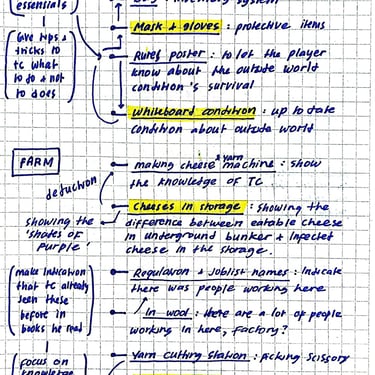 essentials
inventory system
Mask & gloves : protective items
Give tips &
tricks to
TC what
to do & not
to does
Rules poster : to let the player
know about the outside world
condition's survival
Whiteboard condition : up to date
condition about outside world
FARM
making cheese & yarn machine : show
the knowledge of TC
deduction
Cheeses in storage : showing the
difference between eatable cheese
in underground bunker & infected
cheese in the storage.
showing the
'shades of
Purple'
make indication
that TC already
seen these
before in
books he read
Regulation & joblist names : indicate
there was people working here
In wool : there are a lot of people
working in here, factory?
Yarn cutting station : picking scissors
focus on
knowledge